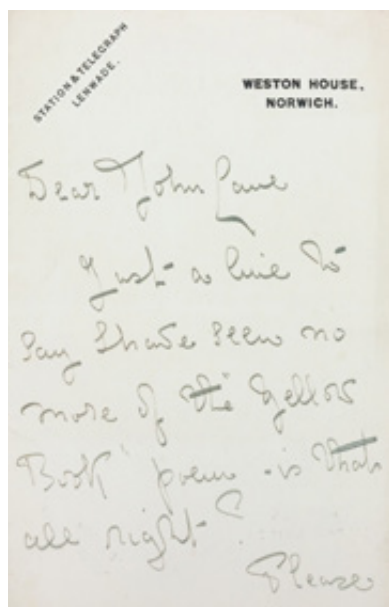 STATION & TELEGRAPH
LENWADE.
WESTON HOUSE,
NORWICH.
Dear John Lane
Just a line to
say I have seen no
more of the Yellow
Book poem - is that
all right?
Please